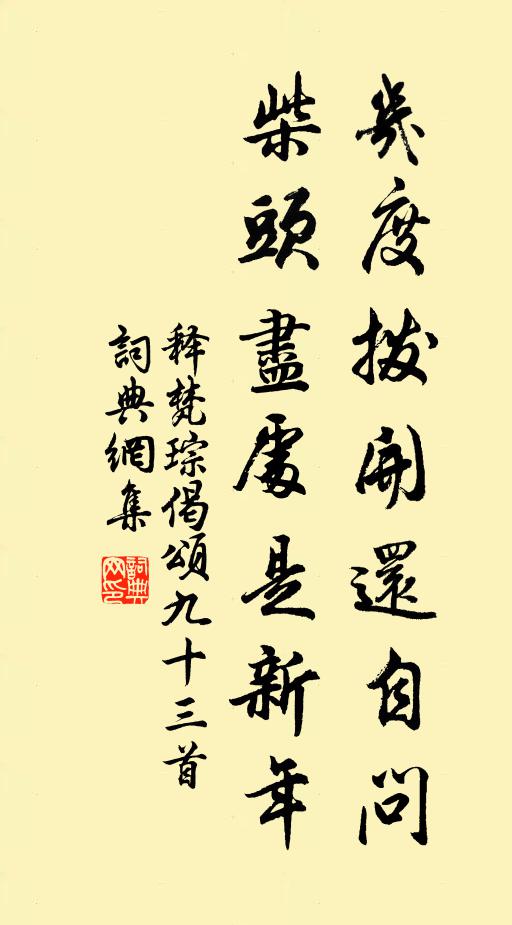 幾度撥開還自問
柴頭盡處是新年
釋梵琮偈頌九十三首
詞典網集
詞典網印